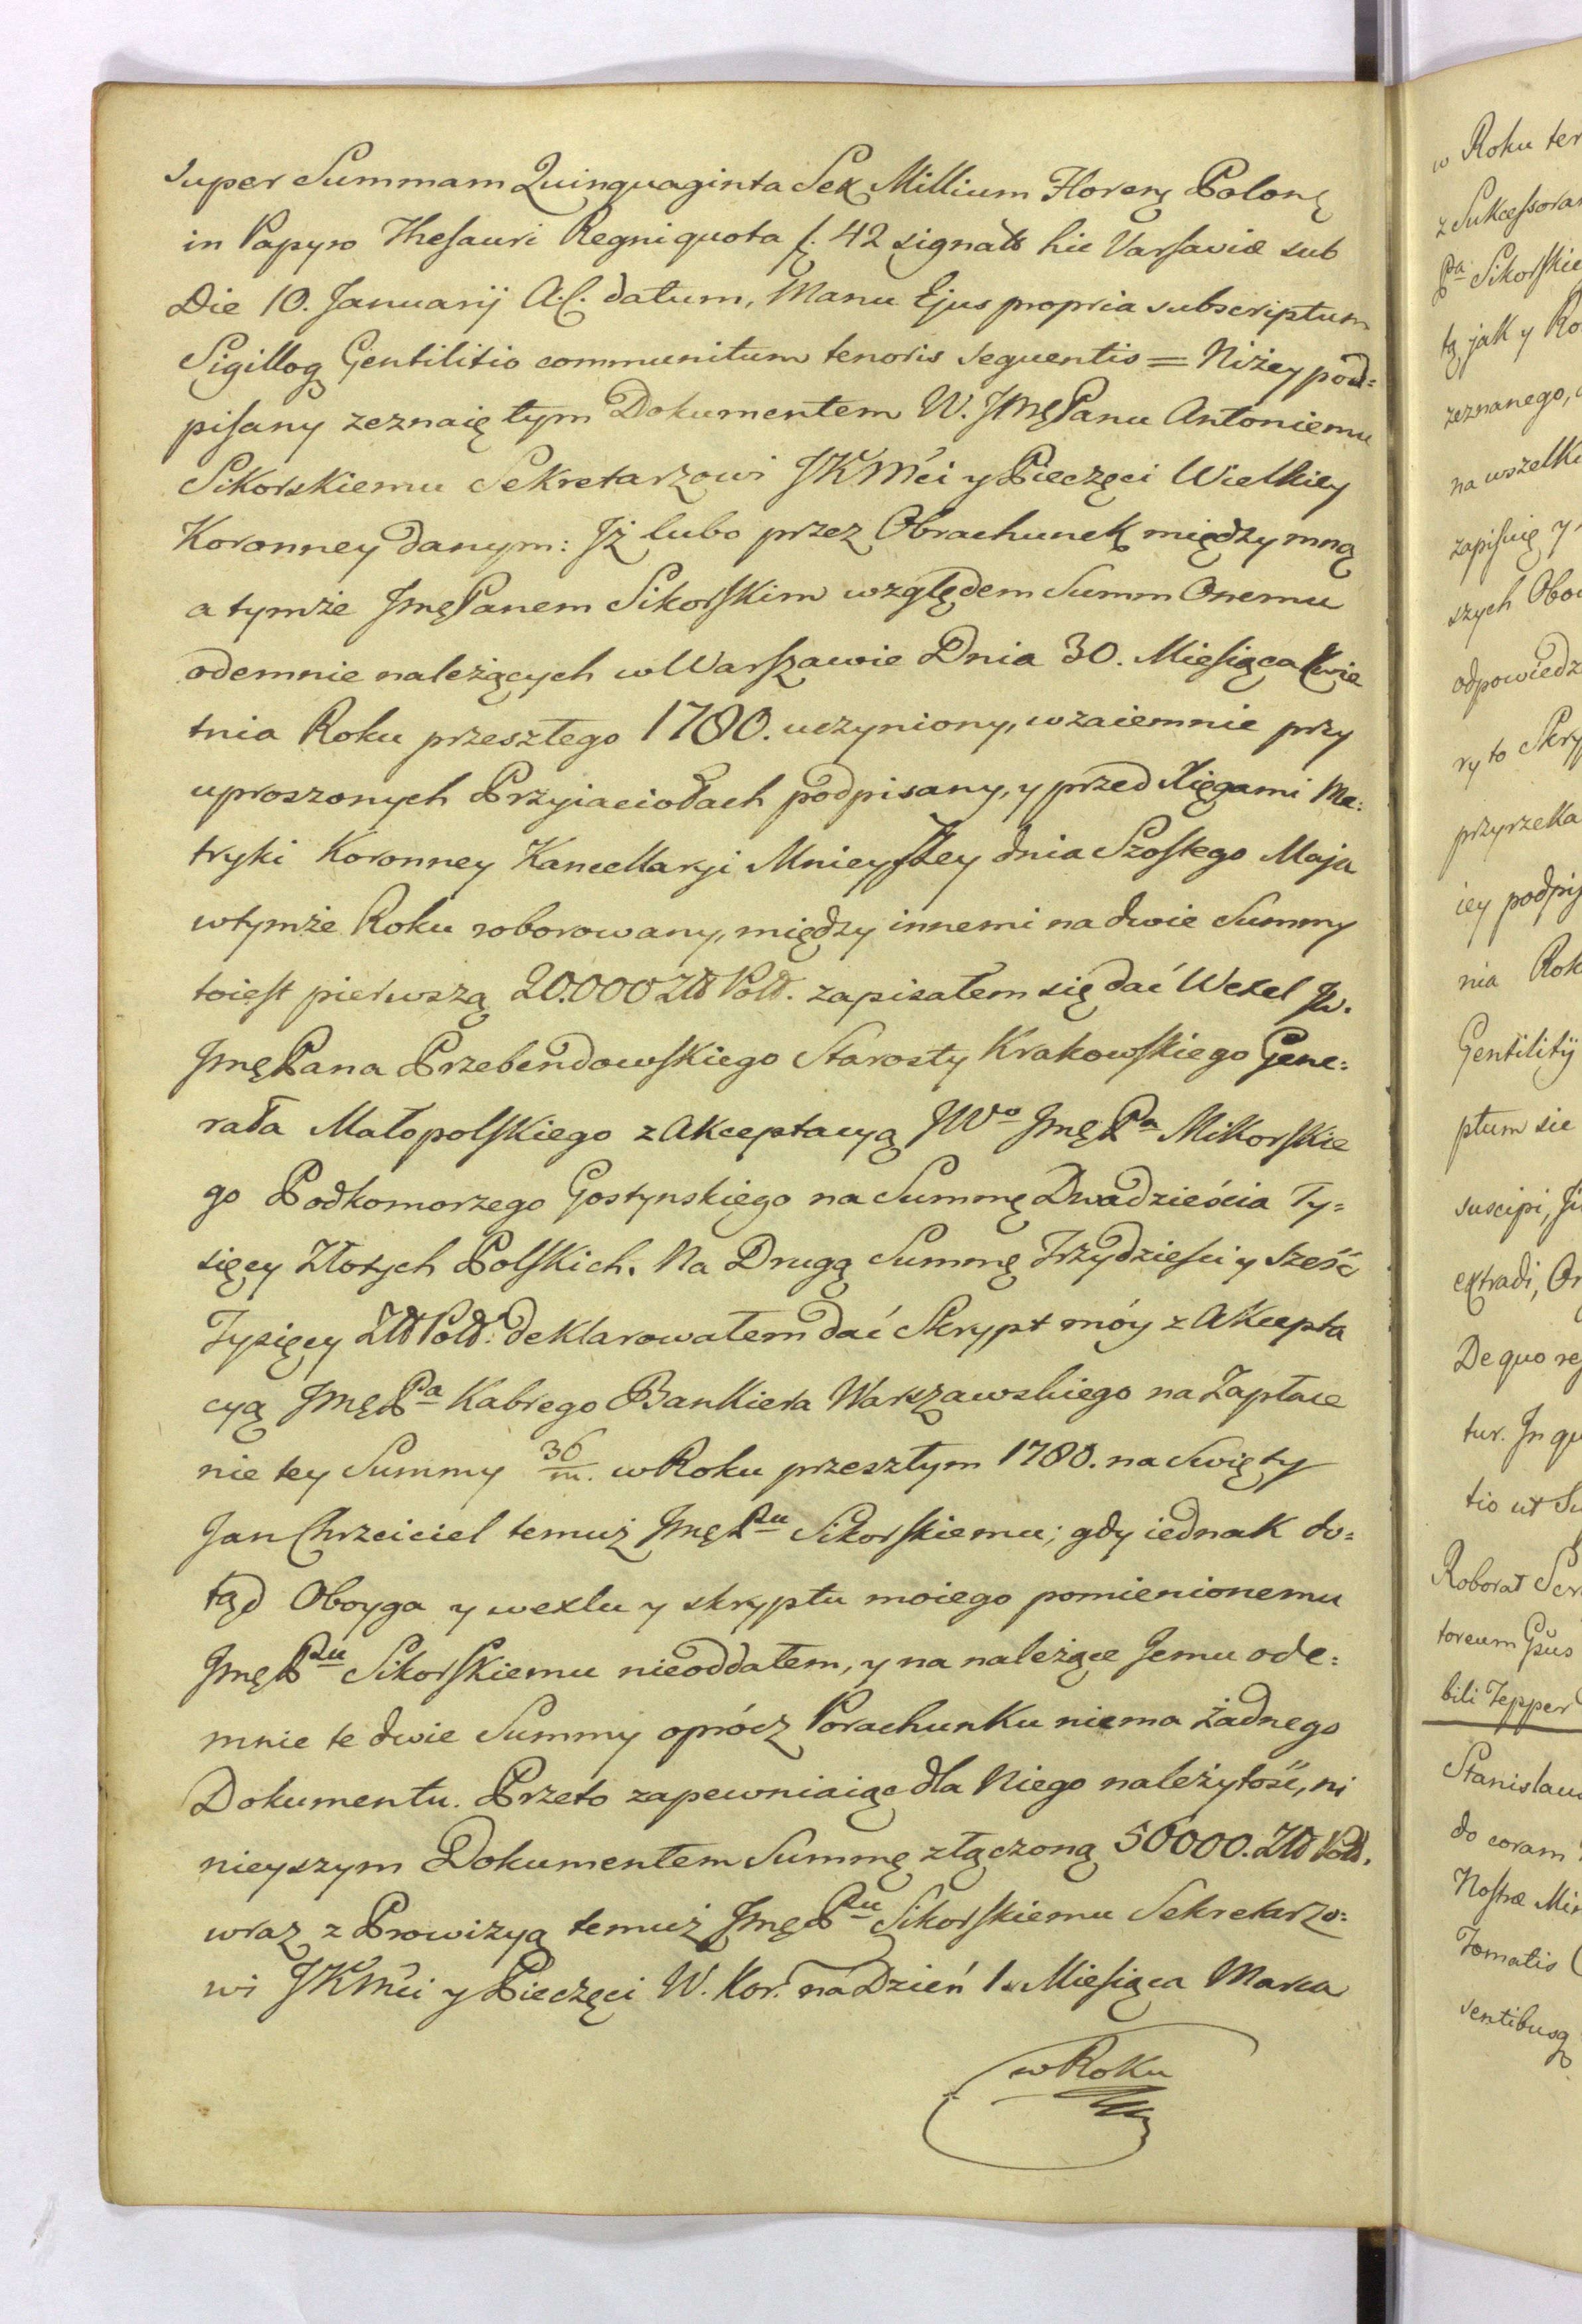 super Summam Quinquaginta Sex Millium Floreng Polong
in Papyro Thesauri Regni quota f. 42 signato hic Varsaviæ sub
Die 10. Januarij A.C. datum, Manu Ejus propria subscriptum
Sigilloq Gentilitio communitum tenoris sequentis = Niżey pod=
pisany zeznaię tym Dokumentem W. JmęPanu Antoniemu
Sikorskiemu Sekretarzowi JKMci y Pieczęci Wielkiey
Koronney danym: Jż lubo przez Obrachunek między mną
a tymże JmęPanem Sikorskim względem Summ Onemu
odemnie należących w Warszawie Dnia 30. Miesiąca Kwie
tnia Roku przeszłego 1780. uczyniony, wzaiemnie przy
uproszonych Przyiaciołach podpisany, y przed Xięgami Me=
tryki Koronney Kancellaryi Mnieyszey dnia Szostego Maja
w tymże Roku roborowany, między innemi na dwie Summy
toiest pierwszą 20.000 Złł Poll. zapisałem się dać Wexel Jw.
JmęPana Przebendowskiego Starosty Krakowskiego Gene=
rała Małopolskiego z Akceptacyą JWo Jmę Pa Mikorskie
go Podkomorzego Gostynskiego na Summę Dwadzieścia Ty=
sięcy Złotych Polskich. Na Drugą Summę Trzydziesci y sześć
Tysięcy Złł Poll. deklarowałem dać Skrypt móy z Akcepta
cyą Jmę Pa Kabrego Bankiera Warszawskiego na Zapłace
nie tey Summy 36/m. w Roku przeszłym 1780. na Swięty
Jan Chrzciciel temuż Jmę Pu Sikorskiemu; gdy iednak do=
tąd Oboyga y wexlu y skryptu moiego pomienionemu
Jmę Pu Sikorskiemu nieoddałem, y na należące Jemu ode=
mnie te dwie Summy oprócz Porachunku niema żadnego
Dokumentu. Przeto zapewniaiąc dla Niego należytość, ni
nieyszym Dokumentem Summę złączoną 56000. Złł Poll.
wraz z Prowizyą temuż Jmę Pu Sikorskiemu Sekretarzo=
wi JKMci y Pieczęci W. Kor. na Dzień 1. Miesiąca Marca
w Roku
w Roku
z Sukcessora
Pa Sikorskie
tą jak y Ro
zeznanego,
na wszelki
zapisuię y
szych Obo
odpowiedz
ry to Skry
przyrzeka
iey podpis
nia Rok
Gentilitij
ptum sie
suscipi,
extradi, Or
De quo re
tur. In qu
tio ut Su
Roborat Scr
toreum Gsus
bili Tepper
Stanislau
do coram
Nostræ Min
Tomatis
sentibusq